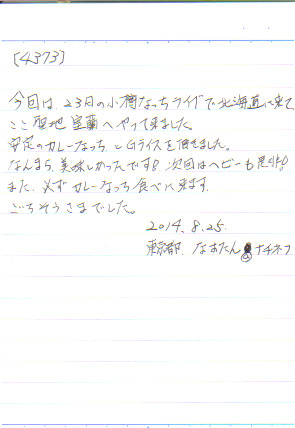 [4373]
今回は、23日の小樽なっちライブで北海道に来て
ここ聖地 室蘭へやって来ました。
安定のカレーなっちとDライスを頂きました。
なんまら美味しかったです!! 次回はヘビーも
また、必ずカレーなっち食べに来ます。
ごちそうさまでした。
2014.8.25.
東京都 なおたん ナチネフ